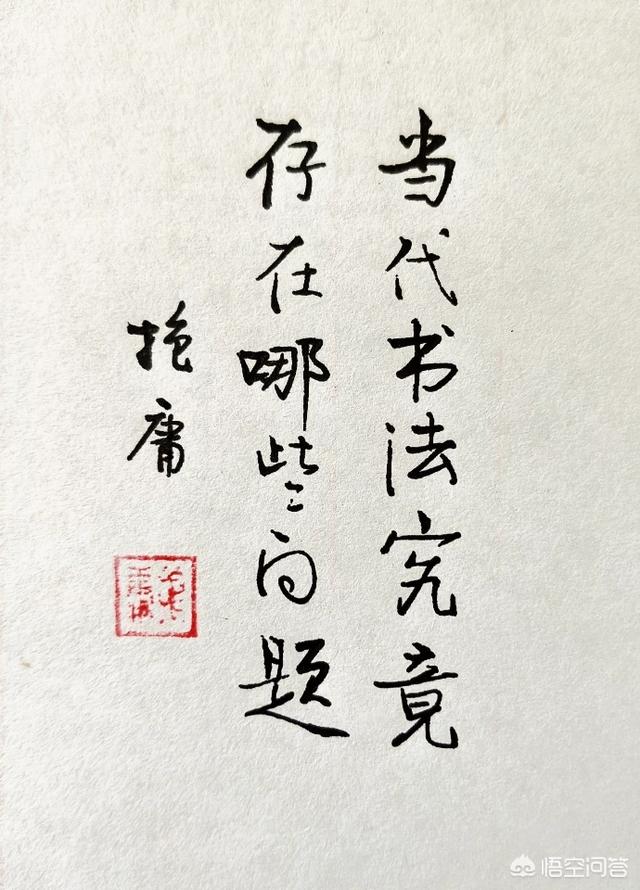 当代书法究竟
存在哪些问题
抱庸
悟空问答